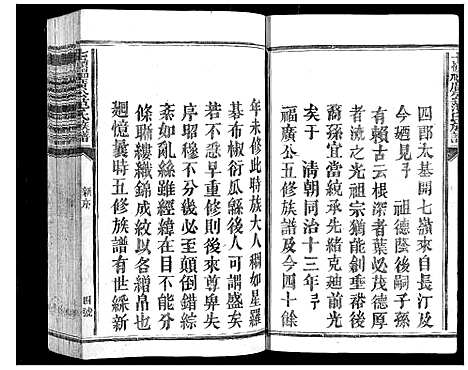 四郎太基開七嶺來自長汀及
今廼見孑祖德蔭後嗣子孫
有賴古云根深者葉必茂德厚
者流光祖宗猶能創垂辥後
裔孫宜當繞承先緒克廸前光
矣于　清朝同治十三年孑
福廣公五修族譜及今四十餘
年未修此時族大人稠如星羅
碁布椒衍瓜緜後人可謂盛矣
若不急早重修以後來尊卑失
序昭穆不分必至顛倒錯綜
紊如亂絲雖經緯在目不能分
條聯縷織錦成紋以名繒帛也
廻憶曩時五修族譜有世綵新
新序
四號